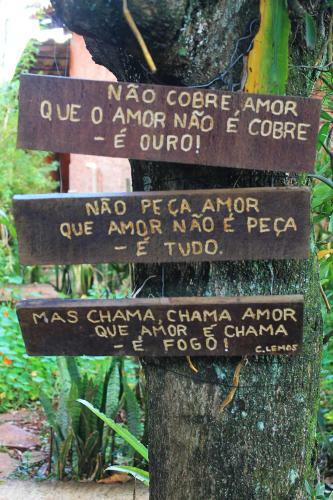 NÃO COBRE, AMOR
QUE O AMOR NÃO É COBRE
- É OURO!
NÃO PEÇA AMOR
QUE AMOR NÃO É PEÇA
- É TUDO.
MAS CHAMA, CHAMA AMOR
QUE AMOR É CHAMA
- É FOGO!
C. LEMOS